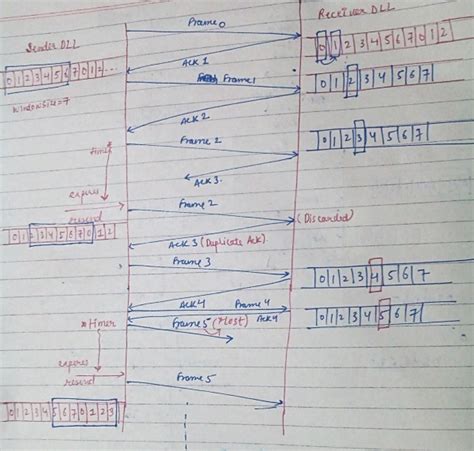 Frame 0
Receiver DLL
Sender DLL
0 1 2 3 4 5 6 7 0 1 2
Ack 1
0 1 2 3 4 5 6 7 0 1 2 ...
Frame 1
0 1 2 3 4 5 6 7
Window size = 7
Ack 2
Frame 2
0 1 2 3 4 5 6 7
Ack 3.
expires
Frame 2
resend
(Discarded)
0 1 2 3 4 5 6 7 0 1 2
Ack 3 (Duplicate Ack)
Frame 3
0 1 2 3 4 5 6 7
Ack 4
Frame 4
0 1 2 3 4 5 6 7
Frame 5 (lost)
Ack 4
timer
expires
resend
Frame 5
0 1 2 3 4 5 6 7 0 1 2 3